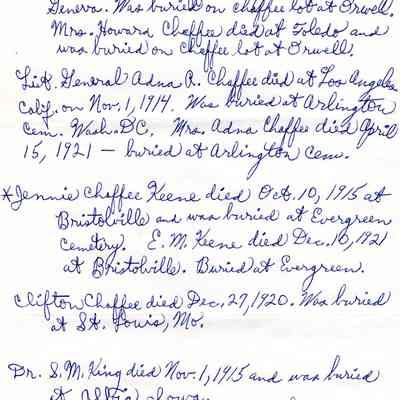 Geneva. Was buried on Chaffee lot at Orwell.
Mrs. Howard Chaffee died at Toledo and
was buried on Chaffee lot at Orwell.
Lieut. General Adna R. Chaffee died at Los Angeles
Calif. on Nov. 1, 1914. Was buried at Arlington
Cem. Wash. DC. Mrs. Adna Chaffee died April
15, 1921 — buried at Arlington Cem.
*Jennie Chaffee Keene died Oct. 10, 1915 at
Bristolville and was buried at Evergreen
Cemetery. E. M. Keene died Dec. 10, 1921
at Bristolville. Buried at Evergreen.
Clifton Chaffee died Dec. 27, 1920. Was buried
at St. Louis, Mo.
Dr. S. M. King died Nov. 1, 1915 and was buried
at Albia, Iowa